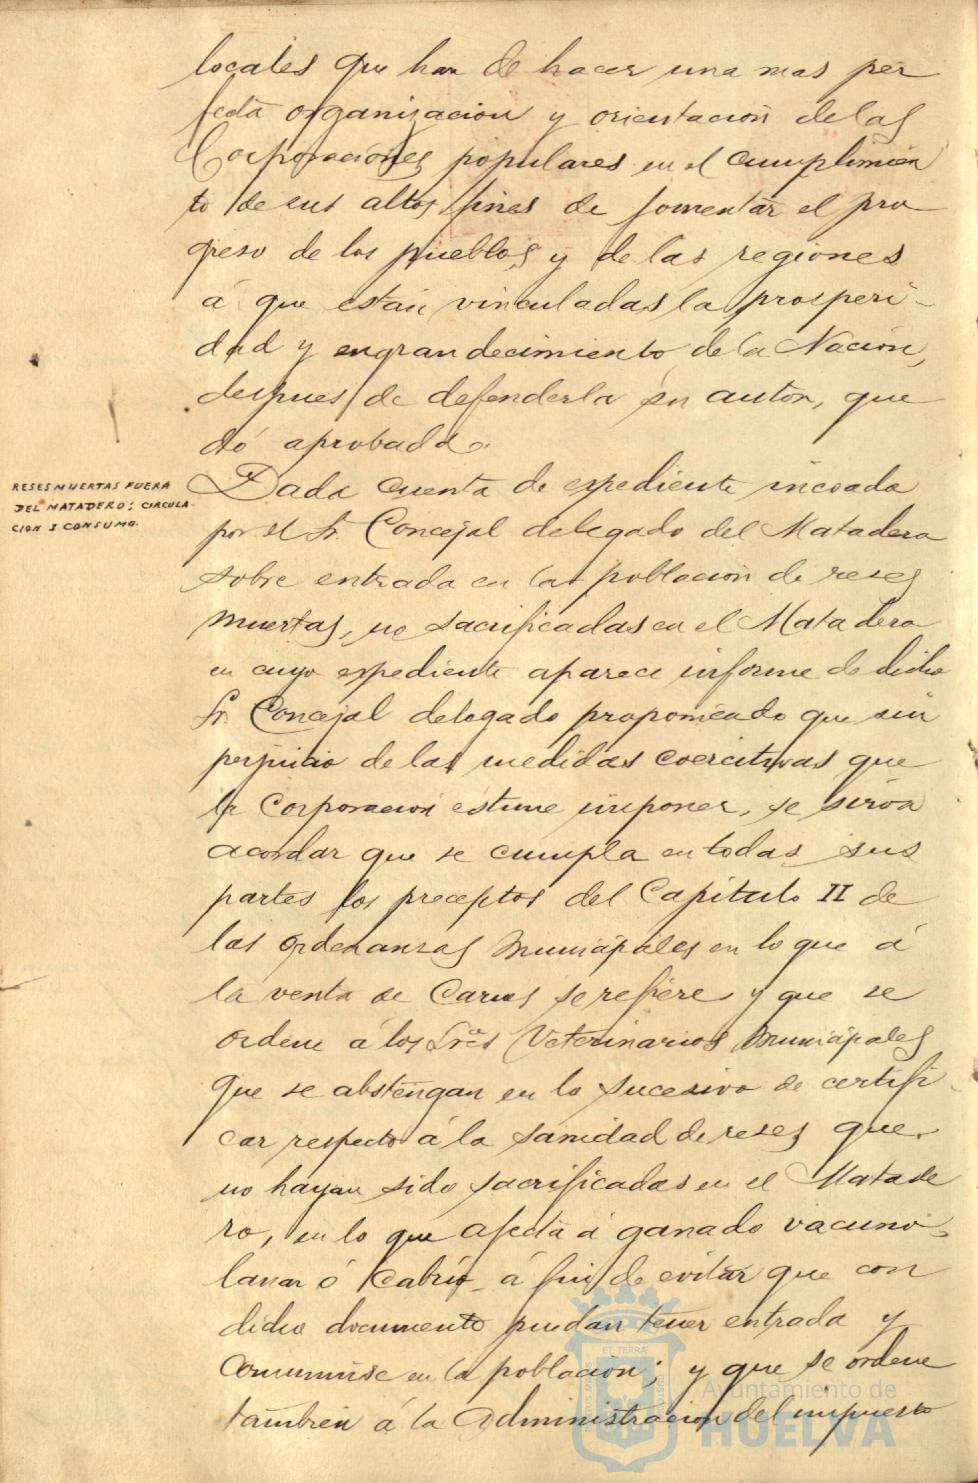 locales que han de hacer una mas per
fecta organizacion y orientacion de las
Corporaciones populares en el cumplimien
to de sus altos fines de fomentar el pro
greso de los pueblos y de las regiones
á que están vinculadas la prosperi-
dad y engrandecimiento de la Nación,
despues de defenderla su autor, que
dó aprobada.
RESES MUERTAS FUERA
DEL MATADERO; CIRCULA-
CION Y CONSUMO.
Dada cuenta de expediente incoado
por el Sr. Concejal delegado del Matadero
sobre entrada en la población de reses
muertas, no sacrificadas en el Matadero
en cuyo expediente aparece informe de dicho
Sr. Concejal delegado proponiendo que sin
perjuicio de las medidas coercitivas que
la Corporacion estime imponer, se sirva
acordar que se cumpla en todas sus
partes los preceptos del Capítulo II de
las Ordenanzas Municipales en lo que á
la venta de Carnes se refiere y que se
ordene á los Sres Veterinarios Municipales
que se abstengan en lo sucesivo de certifi-
car respecto á la sanidad de reses que
no hayan sido sacrificadas en el Matade
ro, en lo que afecta á ganado vacuno,
lanar ó Cabrío, á fin de evitar que con
dicho documento puedan tener entrada y
consumirse en la población; y que se ordene
también á la Administracion del impuesto
ET TERRÆ
Ayuntamiento de
HUELVA